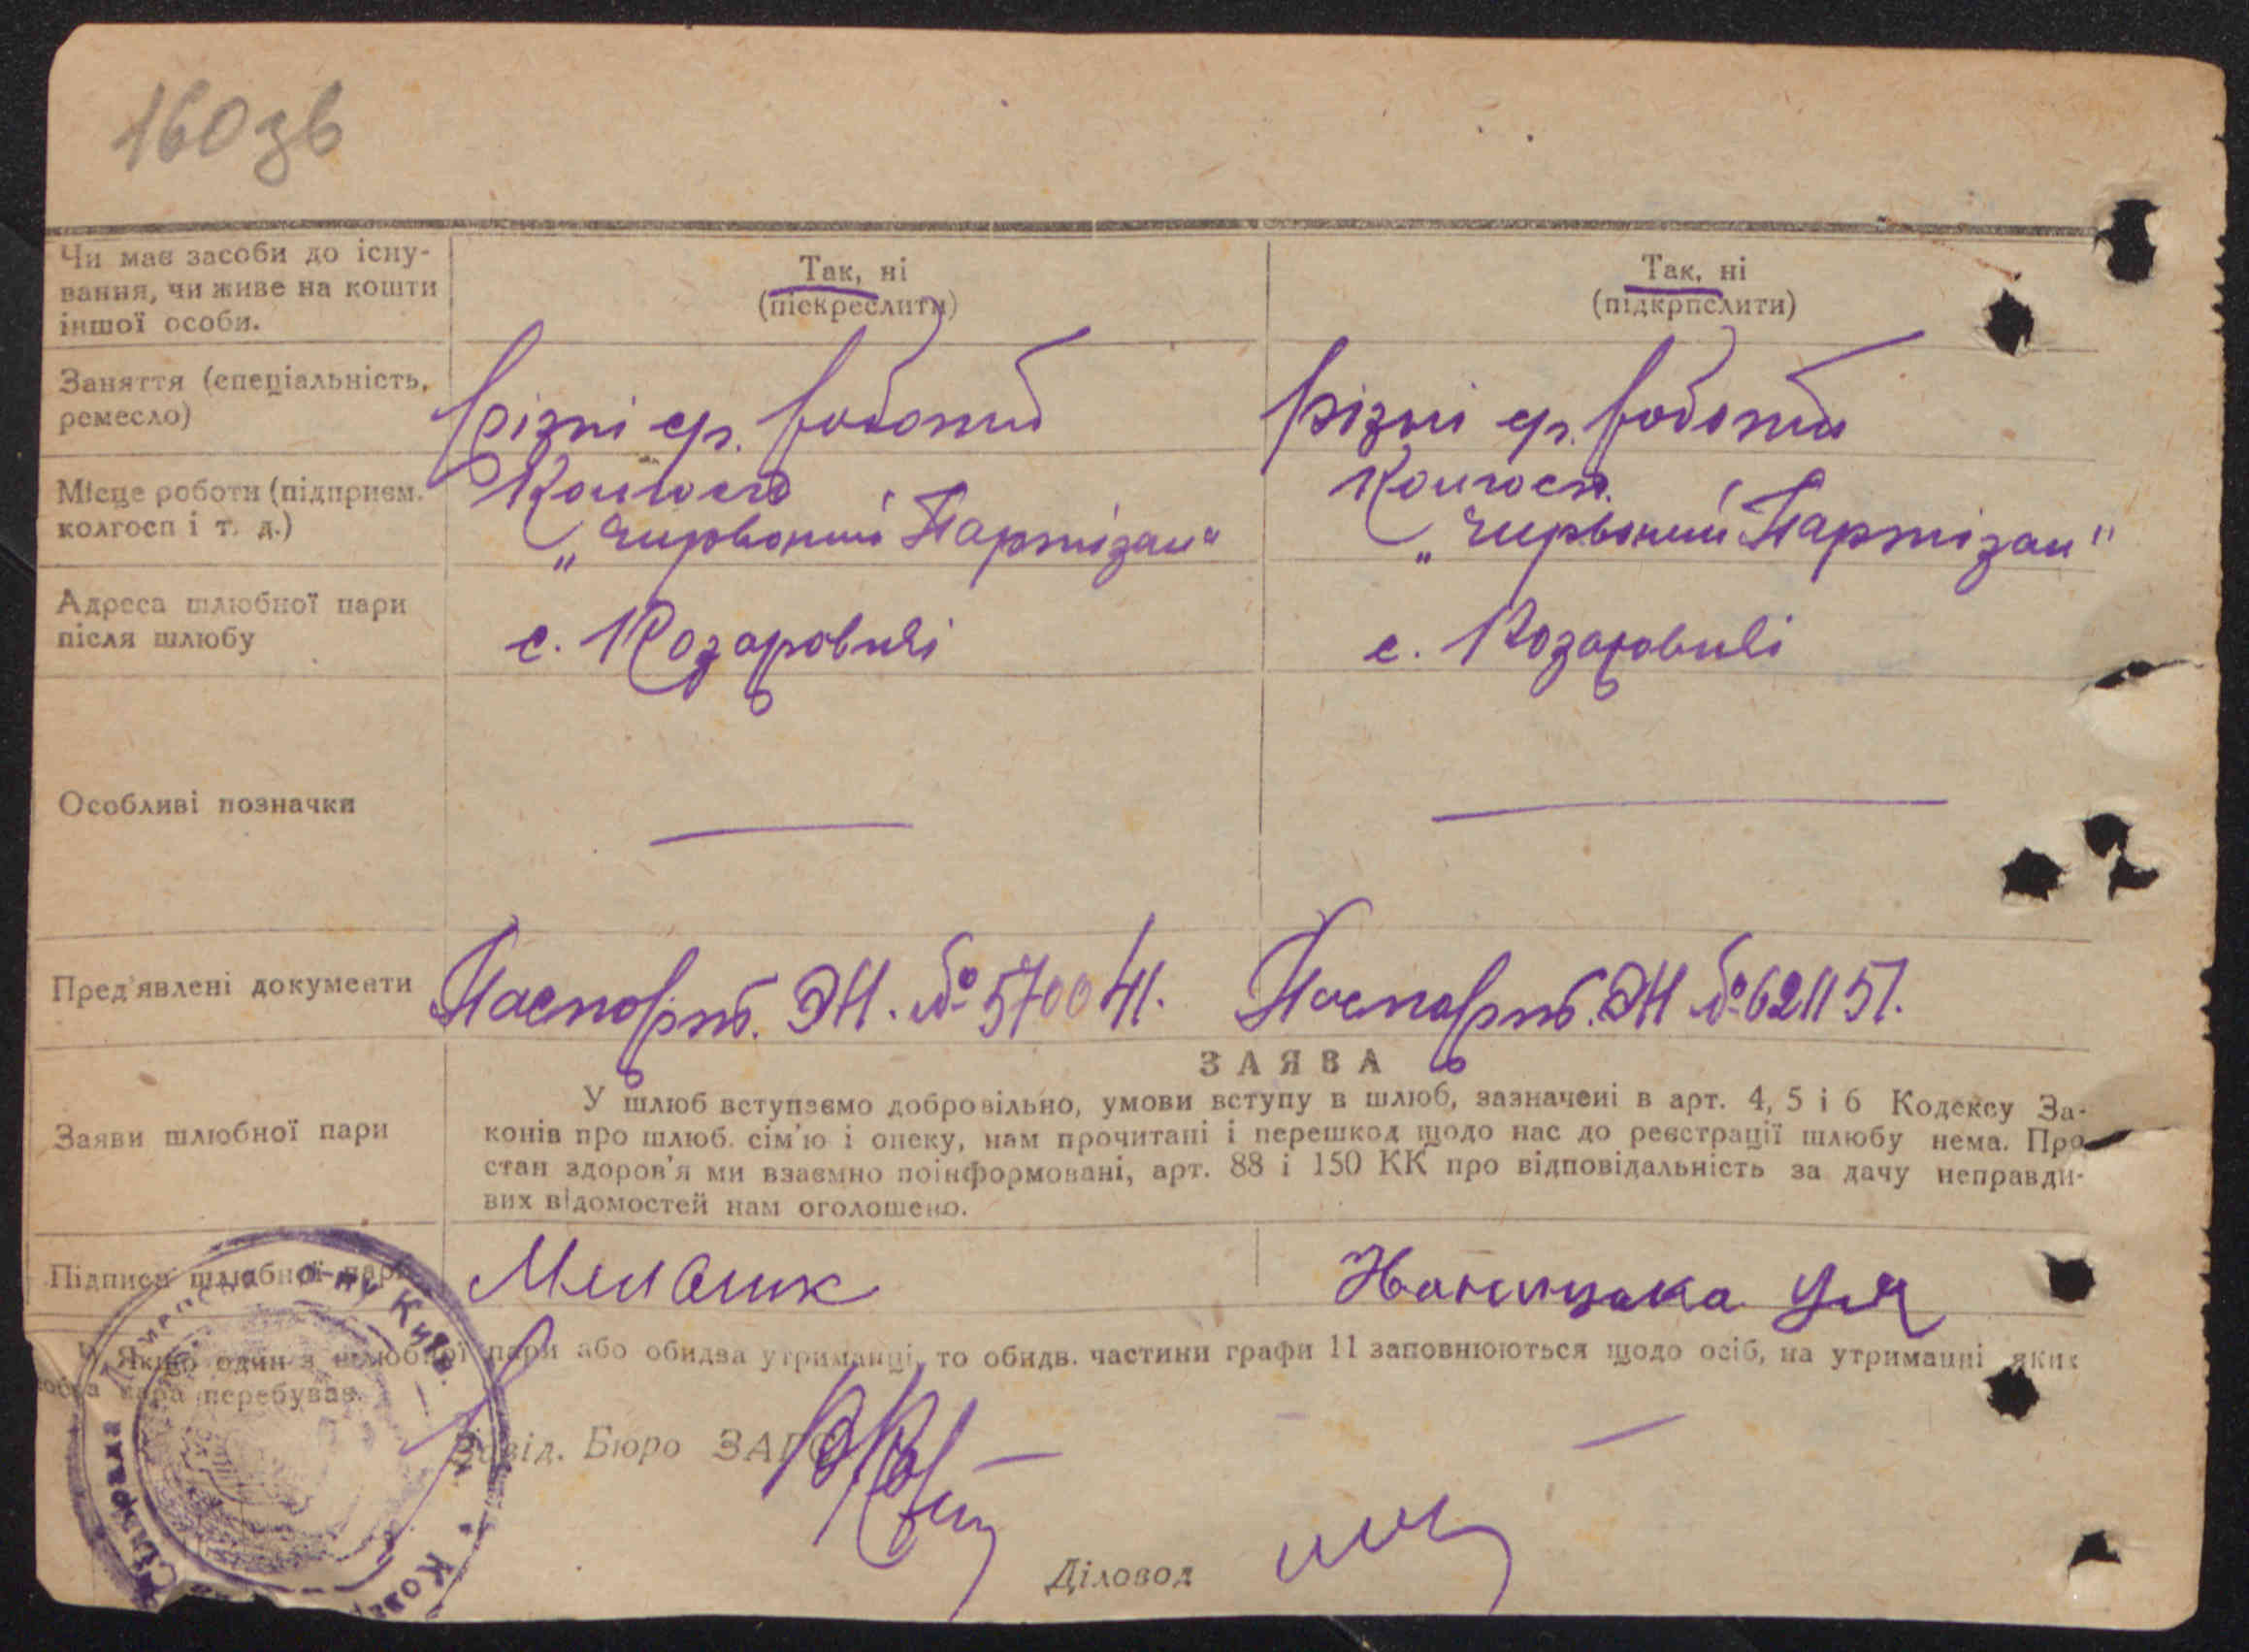 160зв
Чи має засоби до існу-
вання, чи живе на кошти
іншої особи.
Так, ні
(піекреслити)
Так, ні
(підкрпслити)
Заняття (спеціальність,
ремесло)
Різні ср. роботи
Різні ср. роботи
Місце роботи (підприєм.
колгосп і т. д.)
Колгосп
„Червоний Партізан“
Колгосп.
„Червоний Партізан"
Адреса шлюбної пари
після шлюбу
с. Козаровичі
с. Козаровичі
Особливі позначки
Пред'явлені документи
Паспорт. ЭН. № 570041.
Паспорт. ЭН № 621151.
Заяви шлюбної пари
ЗАЯВА
У шлюб вступаємо добровільно, умови вступу в шлюб, зазначені в арт. 4, 5 і 6 Кодексу За-
конів про шлюб. сім'ю і опеку, нам прочитані і перешкод щодо нас до реєстрації шлюбу нема. Про
стан здоров'я ми взаємно поінформовані, арт. 88 і 150 КК про відповідальність за дачу неправди-
вих відомостей нам оголошено.
Підписи шлюбної пари
Мельник
Якщо один з шлюбної пари або обидва утриманці, то обидв. частини графи 11 заповнюються щодо осіб, на утриманні яких
пара перебуває.
Завід. Бюро ЗАГС
Діловод